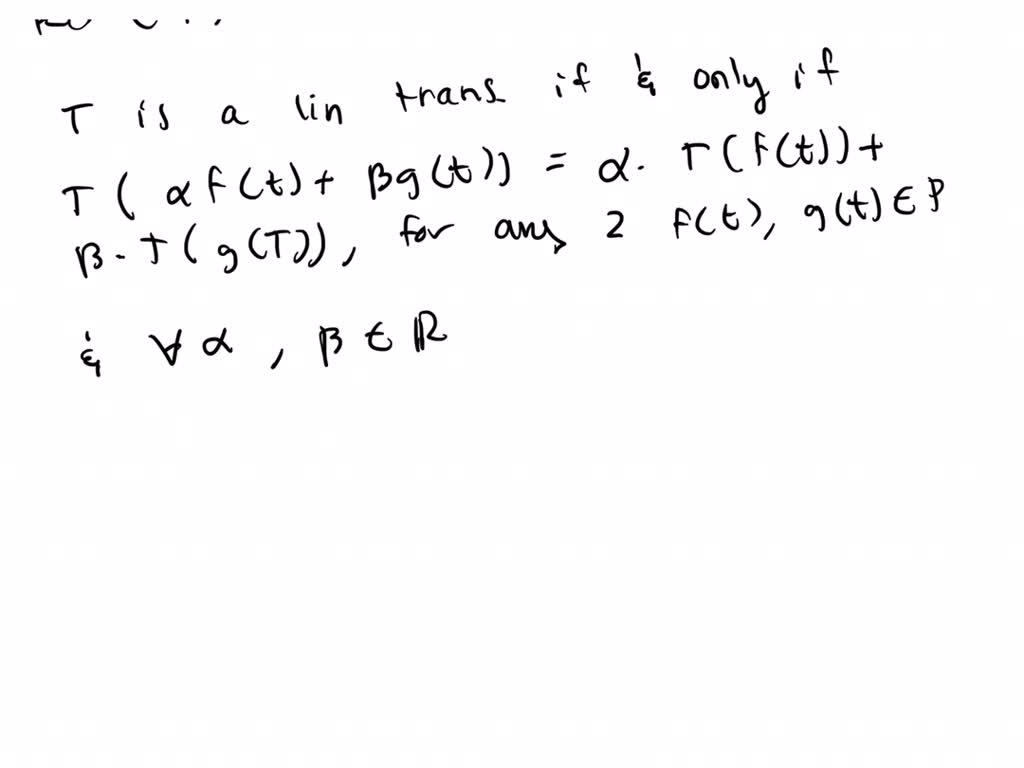 T is a lin trans if & only if
T ( α f(t) + βg(t)) = α. T(f(t)) +
β. T(g(T)), for any 2 f(t), g(t) ∈ P
& ∀ α , β ∈ ℝ